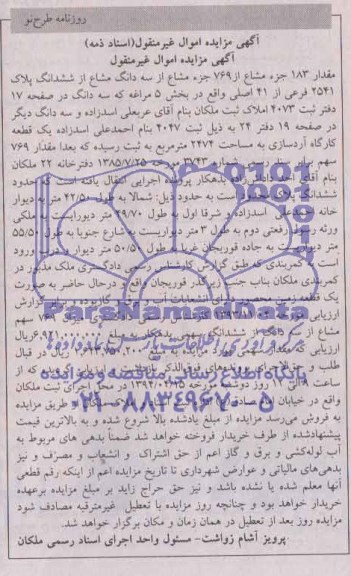 روزنامه طرح‌نو
آگهی مزایده اموال غیرمنقول(اسناد ذمه)
آگهی مزایده اموال غیرمنقول
مقدار ۱۸۳ جزء مشاع از۷۶۹ جزء مشاع از سه دانگ مشاع از ششدانگ پلاک
۲۵۴۱ فرعی از ۴۱ اصلی واقع در بخش ۵ مراغه که سه دانگ در صفحه ۱۷
دفتر ثبت ۴۰۷۳ املاک ثبت ملکان بنام آقای عربعلی اسدزاده و سه دانگ دیگر
در صفحه ۱۹ دفتر ۲۴ به ذیل ثبت ۴۰۴۷ بنام احمدعلی اسدزاده یک قطعه
کارگاه آردسازی به مساحت ۲۴۷۴ مترمربع به ثبت رسیده که بعدا مقدار ۷۶۹
سهم برابر سند رسمی شماره ۳۷۴۳ مورخه ۱۳۸۵/۷/۲۵ دفترخانه ۲۲ ملکان
بنام آقای بدهکار پرونده اجرایی انتقال یافته است که حدود
ششدانگ پلاک محدود است به حدود ذیل: شمالا به طول ۴۲/۵۰ متر به دیوار
خانه احمدعلی اسدزاده و شرقا اول به طول ۴۹/۷۰ متر دیواریست به ملکی
ورثه رفعتی دوم به طول ۳ متر دیواریست به شارع جنوبا به طول ۵۵/۵۰
متر دیواریست به جاده قوریجان غربا به طول ۵۰/۵۰ متر دیوار و درب ورود
است به کمربندی که طبق گزارش کارشناس رسمی دادگستری ملک مذبور در
کمربندی ملکان بناب جنب زیرگذر قوریجان واقع و درحال حاضر به صورت
یک قطعه زمین محصور دارای انشعابات آب و برق و گاز بوده و طبق گزارش
ارزیابی سهم
مشاع از ششدانگ سهمی بدهکار به مبلغ ۶/۹۲۱/۰۰۰/۰۰۰ ریال
ارزیابی که مقدار سهمی مورد مزایده به مبلغ ریال در قبال
طلب و
ساعت ۹ الی ۱۲ روز دوشنبه مورخه ۱۳۹۴/۰۴/۱۵ در محل اجرای ثبت ملکان
واقع در خیابان امام صادق از طریق مزایده
به فروش می‌رسد مزایده از مبلغ یادشده بالا شروع شده و به بالاترین قیمت
پیشنهادشده از طرف خریدار فروخته خواهد شد ضمنا بدهی های مربوط به
آب لوله‌کشی و برق و گاز اعم از حق اشتراک و انشعاب و مصرف و نیز
بدهی‌های مالیاتی و عوارض شهرداری تا تاریخ مزایده اعم از اینکه رقم قطعی
آنها معلم شده یا نشده باشد و نیز حق حراج زاید بر مبلغ مزایده برعهده
خریدار خواهد بود و چنانچه روز مزایده با تعطیل غیرمترقبه مصادف شود
مزایده روز بعد از تعطیل در همان زمان و مکان برگزار خواهد شد.
پرویز آشام زواشت- مسئول واحد اجرای اسناد رسمی ملکان
ParsNamadData
پایگاه اطلاع رسانی مناقصه و مزایده
۰۲۱-۸۸۳۴۹۶۷۰-۵